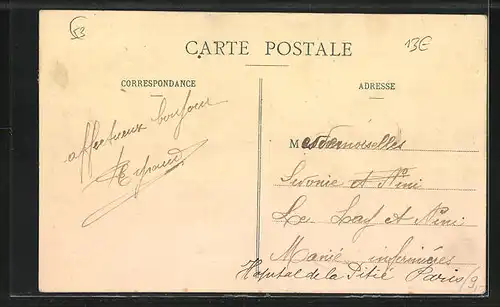 53
13€
CARTE POSTALE
CORRESPONDANCE
ADRESSE
affectueux bonjour
Mesdemoiselles
et Nini
Le et Nini
Marie infirmières
Hopital de la Pitié Paris